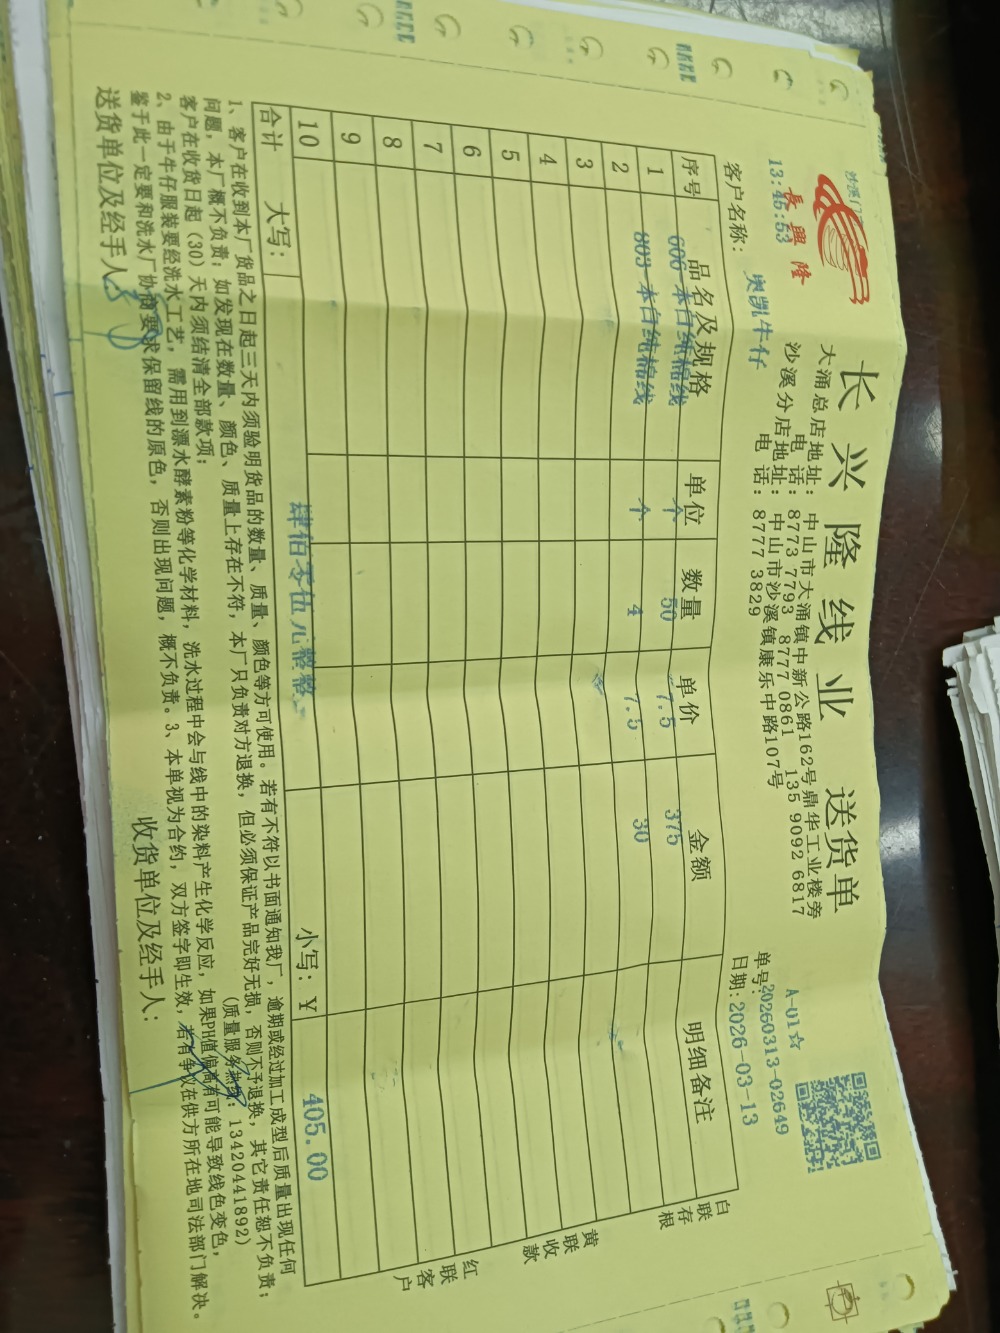 沙溪门
長興隆
13:45:53
长兴隆线业 送货单
大涌总店地址：中山市大涌镇中新公路162号鼎华工业楼旁
电话：8773 7793 8777 0861 135 9092 6817
沙溪分店地址：中山市沙溪镇康乐中路107号
电话：8777 3829
A-01☆
单号:20260313-02649
客户名称：奥凯牛仔
日期:2026-03-13
序号 品名及规格 单位 数量 单价 金额 明细备注
1 606-本白纯棉线 个 50 7.5 375
2 803-本白纯棉线 个 4 7.5 30
3
4
5
6
7
8
9
10
合计 大写：肆佰零伍元整整 小写：¥ 405.00
白联存根
黄联收款
红联客户
1、客户在收到本厂货品之日起三天内须验明货品的数量、质量、颜色等方可使用。若有不符以书面通知我厂，逾期或经过加工成型后质量出现任何
问题，本厂概不负责；如发现在数量、颜色、质量上存在不符，本厂只负责对方退换，但必须保证产品完好无损，否则不予退换，其它责任恕不负责；
客户在收货日起（30）天内须结清全部款项； (质量服务热线：13420441892)
2、由于牛仔服装要经洗水工艺，需用到漂水酵素粉等化学材料，洗水过程中会与线中的染料产生化学反应，如果PH值偏高有可能导致线色变色，
鉴于此一定要和洗水厂协商要求保留线的原色，否则出现问题，概不负责。3、本单视为合约，双方签字即生效，若有争议在供方所在地司法部门解决。
送货单位及经手人： 收货单位及经手人：